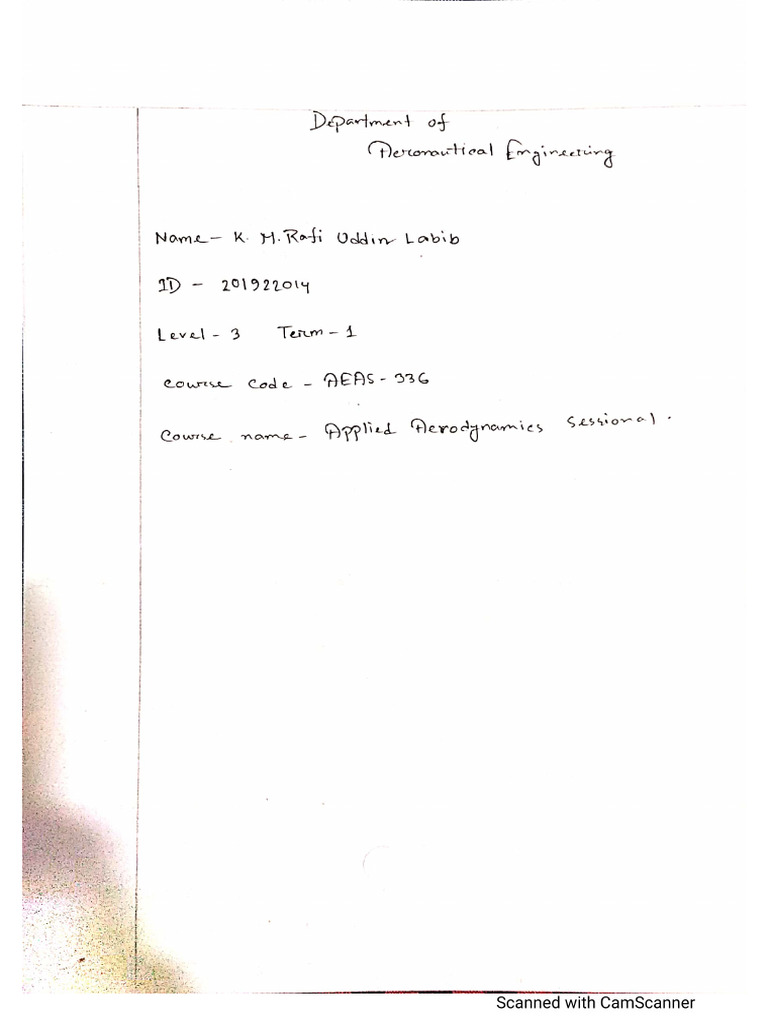 Department of
Aeronautical Engineering
Name - K. M. Rafi Uddin Labib
ID - 201922014
Level - 3 Term - 1
Course Code - AEAS - 336
Course name - Applied Aerodynamics Sessional.
Scanned with CamScanner